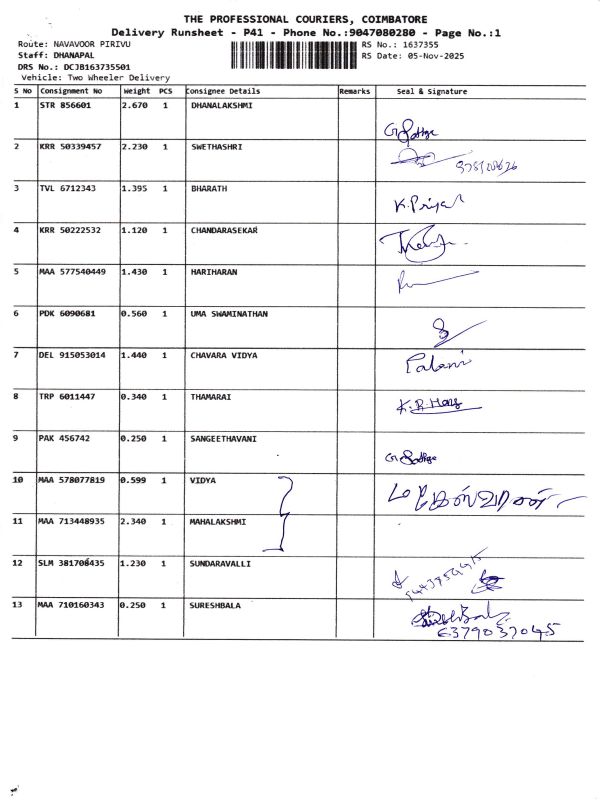 THE PROFESSIONAL COURIERS, COIMBATORE
Delivery Runsheet - P41 - Phone No.:9047080280 - Page No.:1
Route: NAVAVOOR PIRIVU RS No.: 1637355
Staff: DHANAPAL RS Date: 05-Nov-2025
DRS No.: DCJB163735501
Vehicle: Two Wheeler Delivery
S No Consignment No Weight PCS Consignee Details Remarks Seal & Signature
1 STR 856601 2.670 1 DHANALAKSHMI
2 KRR 50339457 2.230 1 SWETHASHRI
3 TVL 6712343 1.395 1 BHARATH K.Priya
4 KRR 50222532 1.120 1 CHANDARASEKAR
5 MAA 577540449 1.430 1 HARIHARAN
6 PDK 6090681 0.560 1 UMA SWAMINATHAN
7 DEL 915053014 1.440 1 CHAVARA VIDYA Palani
8 TRP 6011447 0.340 1 THAMARAI
9 PAK 456742 0.250 1 SANGEETHAVANI
10 MAA 578077819 0.599 1 VIDYA
11 MAA 713448935 2.340 1 MAHALAKSHMI
12 SLM 381708435 1.230 1 SUNDARAVALLI
13 MAA 710160343 0.250 1 SURESHBALA
6379037045